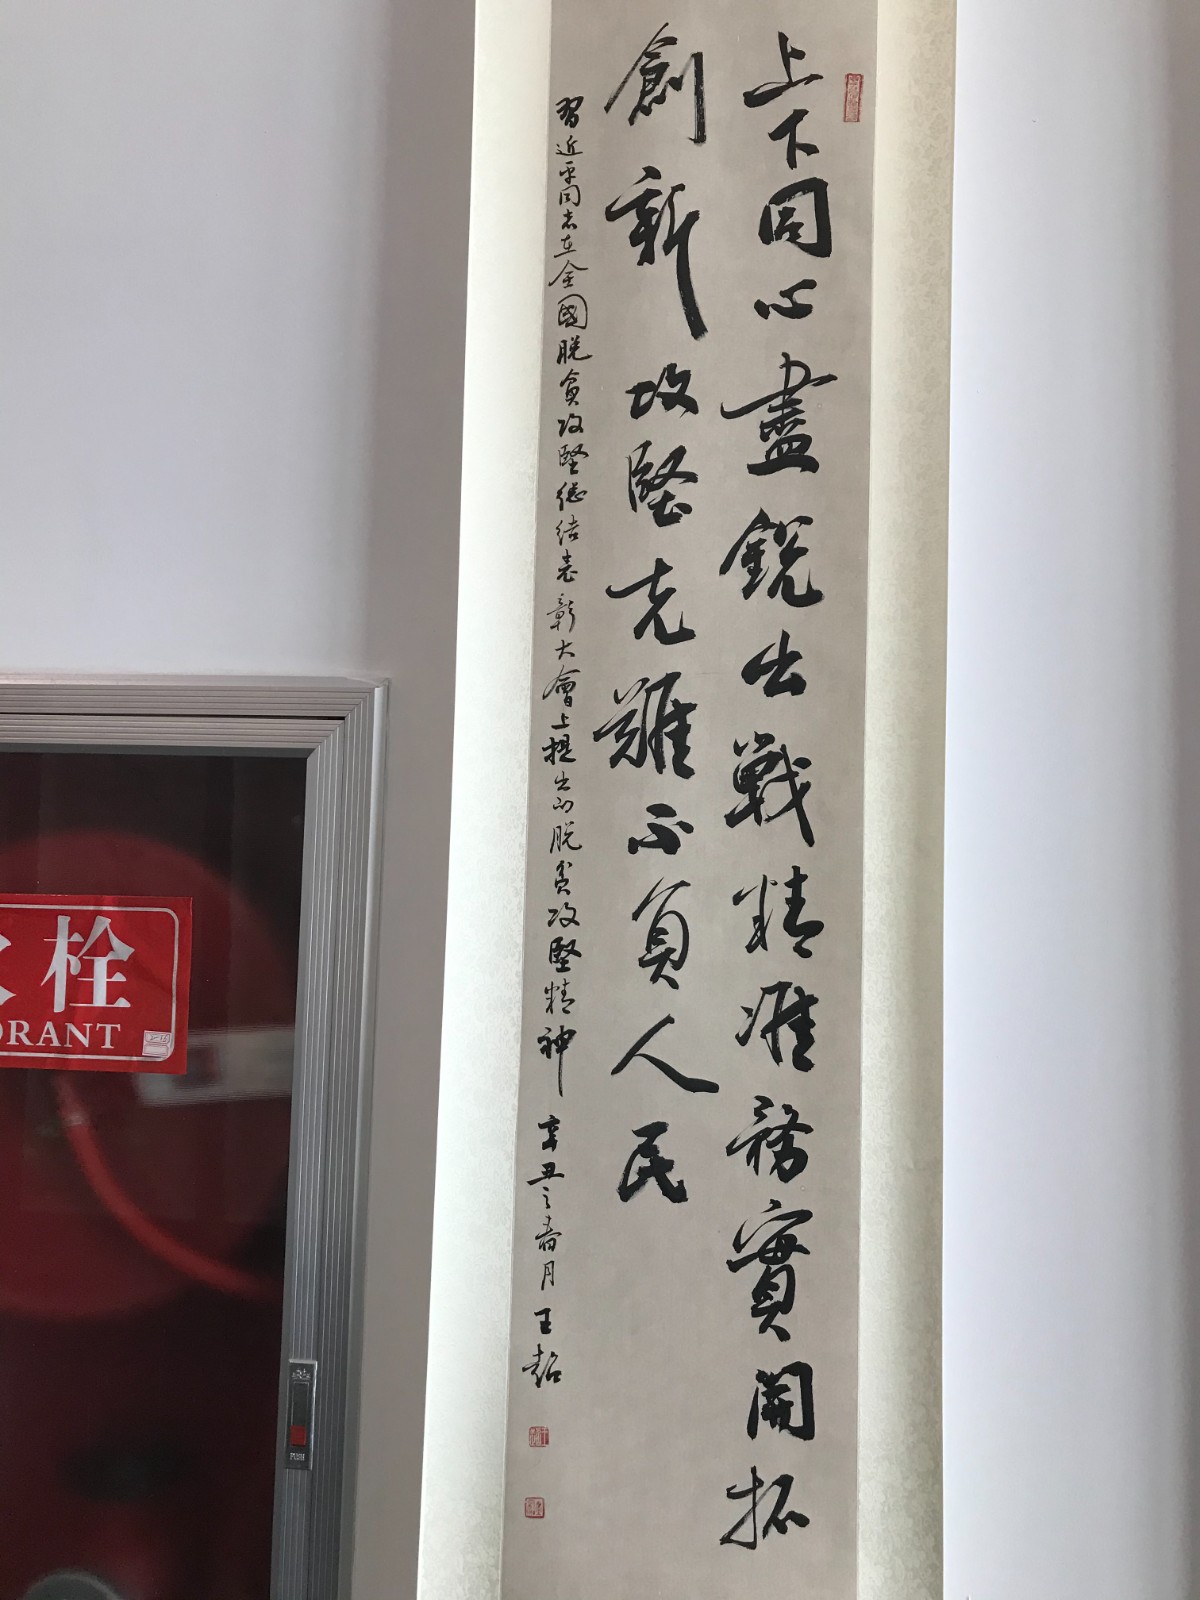 上下同心盡銳出戰精準務實開拓
創新攻堅克難不負人民
習近平同志在全國脫貧攻堅總結表彰大會上提出的脫貧攻堅精神 辛丑之春月 王
栓
DRANT
PUSH